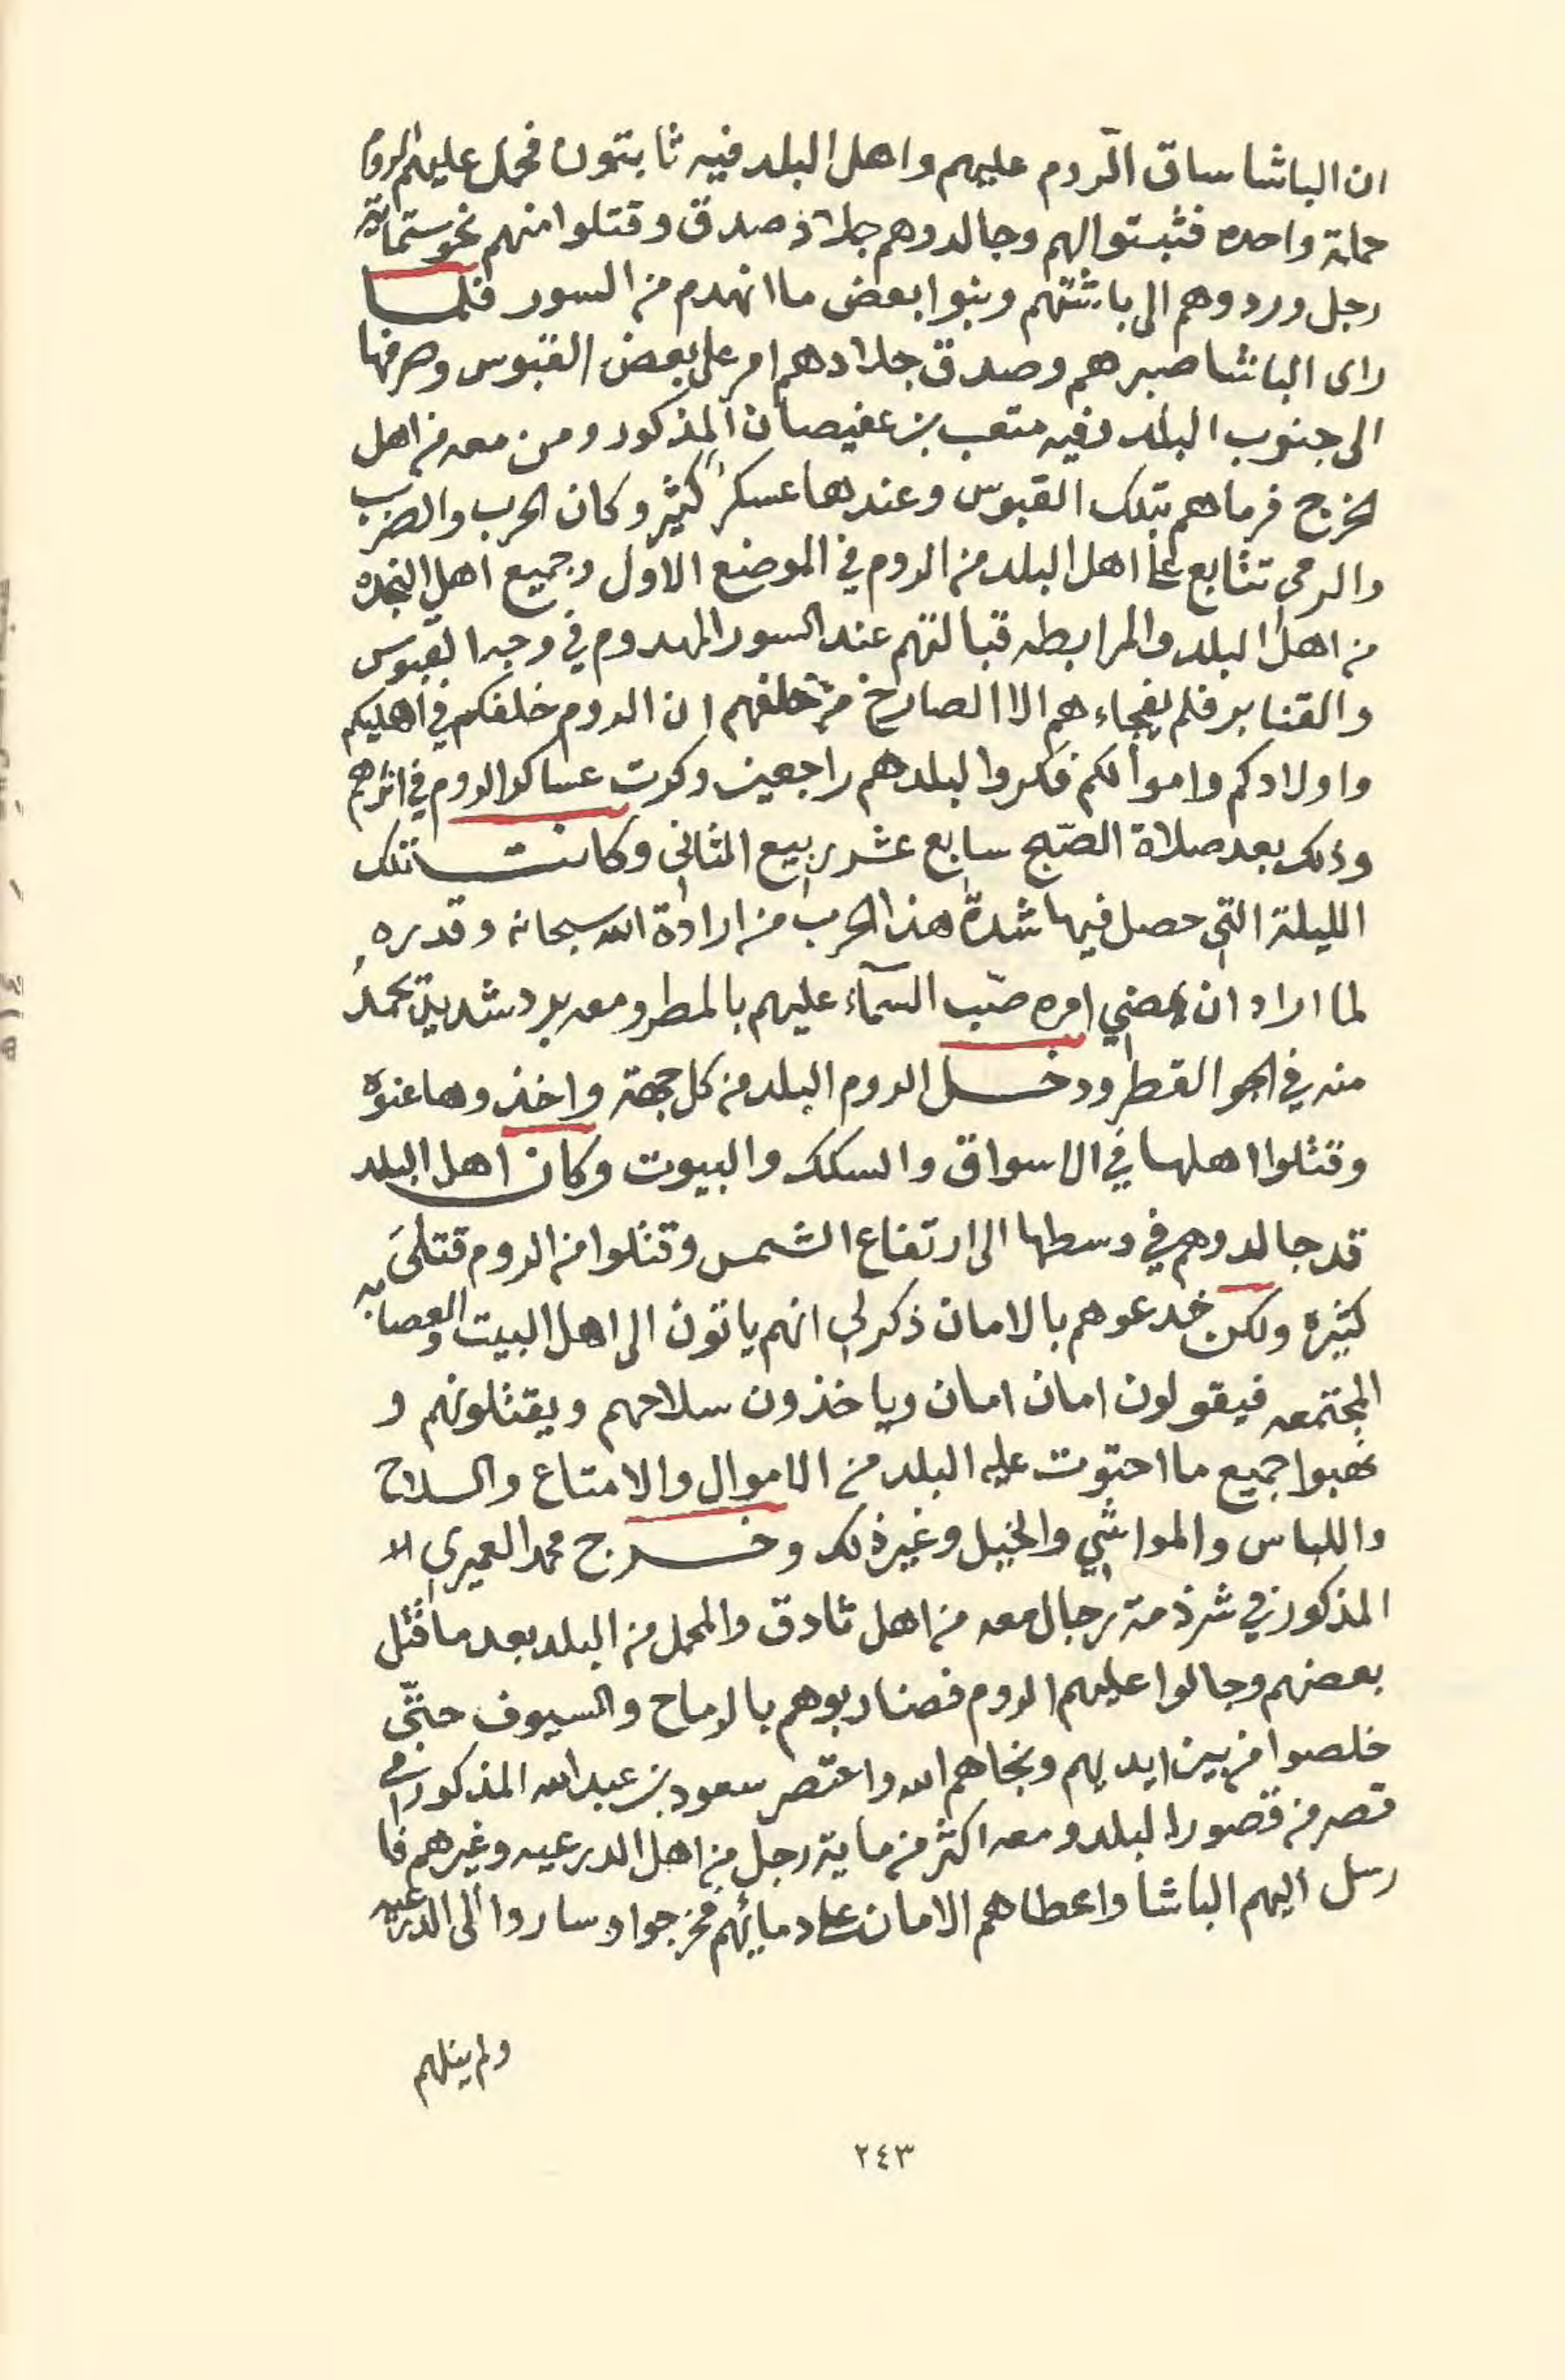 ان الباشا ساق الروم عليهم واهل البلد فيه ثابتون فحمل عليهم الروم
حملة واحده فثبتوا لهم وجالدوهم جلاد صدق وقتلوا منهم نحو ستماية
رجل وردوهم الى باشتهم وبنوا بعض ما انهدم من السور فلما
راى الباشا صبرهم وصدق جلادهم امر على بعض القبوس وصرفها
الى جنوب البلد وفيه متعب بن عفيصان المذكور ومن معه من اهل
الخرج فرماهم بتلك القبوس وعندها عسكرٌ كثير وكان الحرب والضرب
والرمى تتابع على اهل البلد من الروم في الموضع الاول وجميع اهل النجده
من اهل البلد والمرابطه قبالتهم عند السور المهدوم في وجه القبوس
والقنابر فلم يفجاءهم الا الصارخ من خلفهم ان الروم خلفكم في اهليكم
واولادكم واموالكم فكروا لبلدهم راجعين وكرت عساكر الروم في اثرهم
وذلك بعد صلاة الصّبح سابع عشر ربيع الثانى وكانت تلك
الليلة التي حصل فيها شدة هذا الحرب من ارادة الله سبحانه وقدره
لما اراد ان يمضي امره صّب السمآء عليهم بالمطر ومعه برد شديد تجمدُ
منه في الجو القطر ودخل الروم البلد من كل جهة واخذوها عنوة
وقتلوا اهلها في الاسواق والسكك والبيوت وكان اهل البلد
قد جالدوهم في وسطها الى ارتفاع الشمس وقتلوا من الروم قتلىَ
كثيرة ولكن خدعوهم بالامان ذكر لي انهم ياتون الى اهل البيت والعصابه
المجتمعه فيقولون امان امان وياخذون سلاحهم ويقتلونهم و
نهبوا جميع ما احتوت عليه البلد من الاموال والامتاع والسلاح
واللباس والمواشي والخيل وغير ذلك وخرج محمد العميري
المذكور في شرذمة رجال معه من اهل ثادق والمحمل من البلد بعد ما قُتل
بعضهم وجالوا عليهم الروم فضاربوهم بالرماح والسيوف حتّى
خلصوا من بين ايديهم ونجاهم الله واعتصر سعود بن عبدالله المذكور في
قصر من قصور البلد ومعه اكثر من ماية رجل من اهل الدرعيه وغيرهم فا
رسل اليهم الباشا واعطاهم الامان على دمائهم فخرجوا وساروا الى الدرعيه
ولم ينلهم
٢٤٣